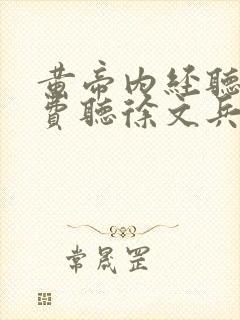 黄帝内経聽
費聽徐文兵
常晟罡